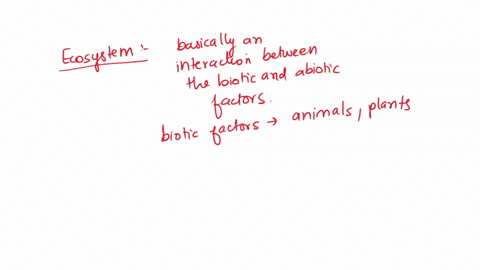 Ecosystem :- basically an
interaction between
the biotic and abiotic
factors.
biotic factors → animals, plants